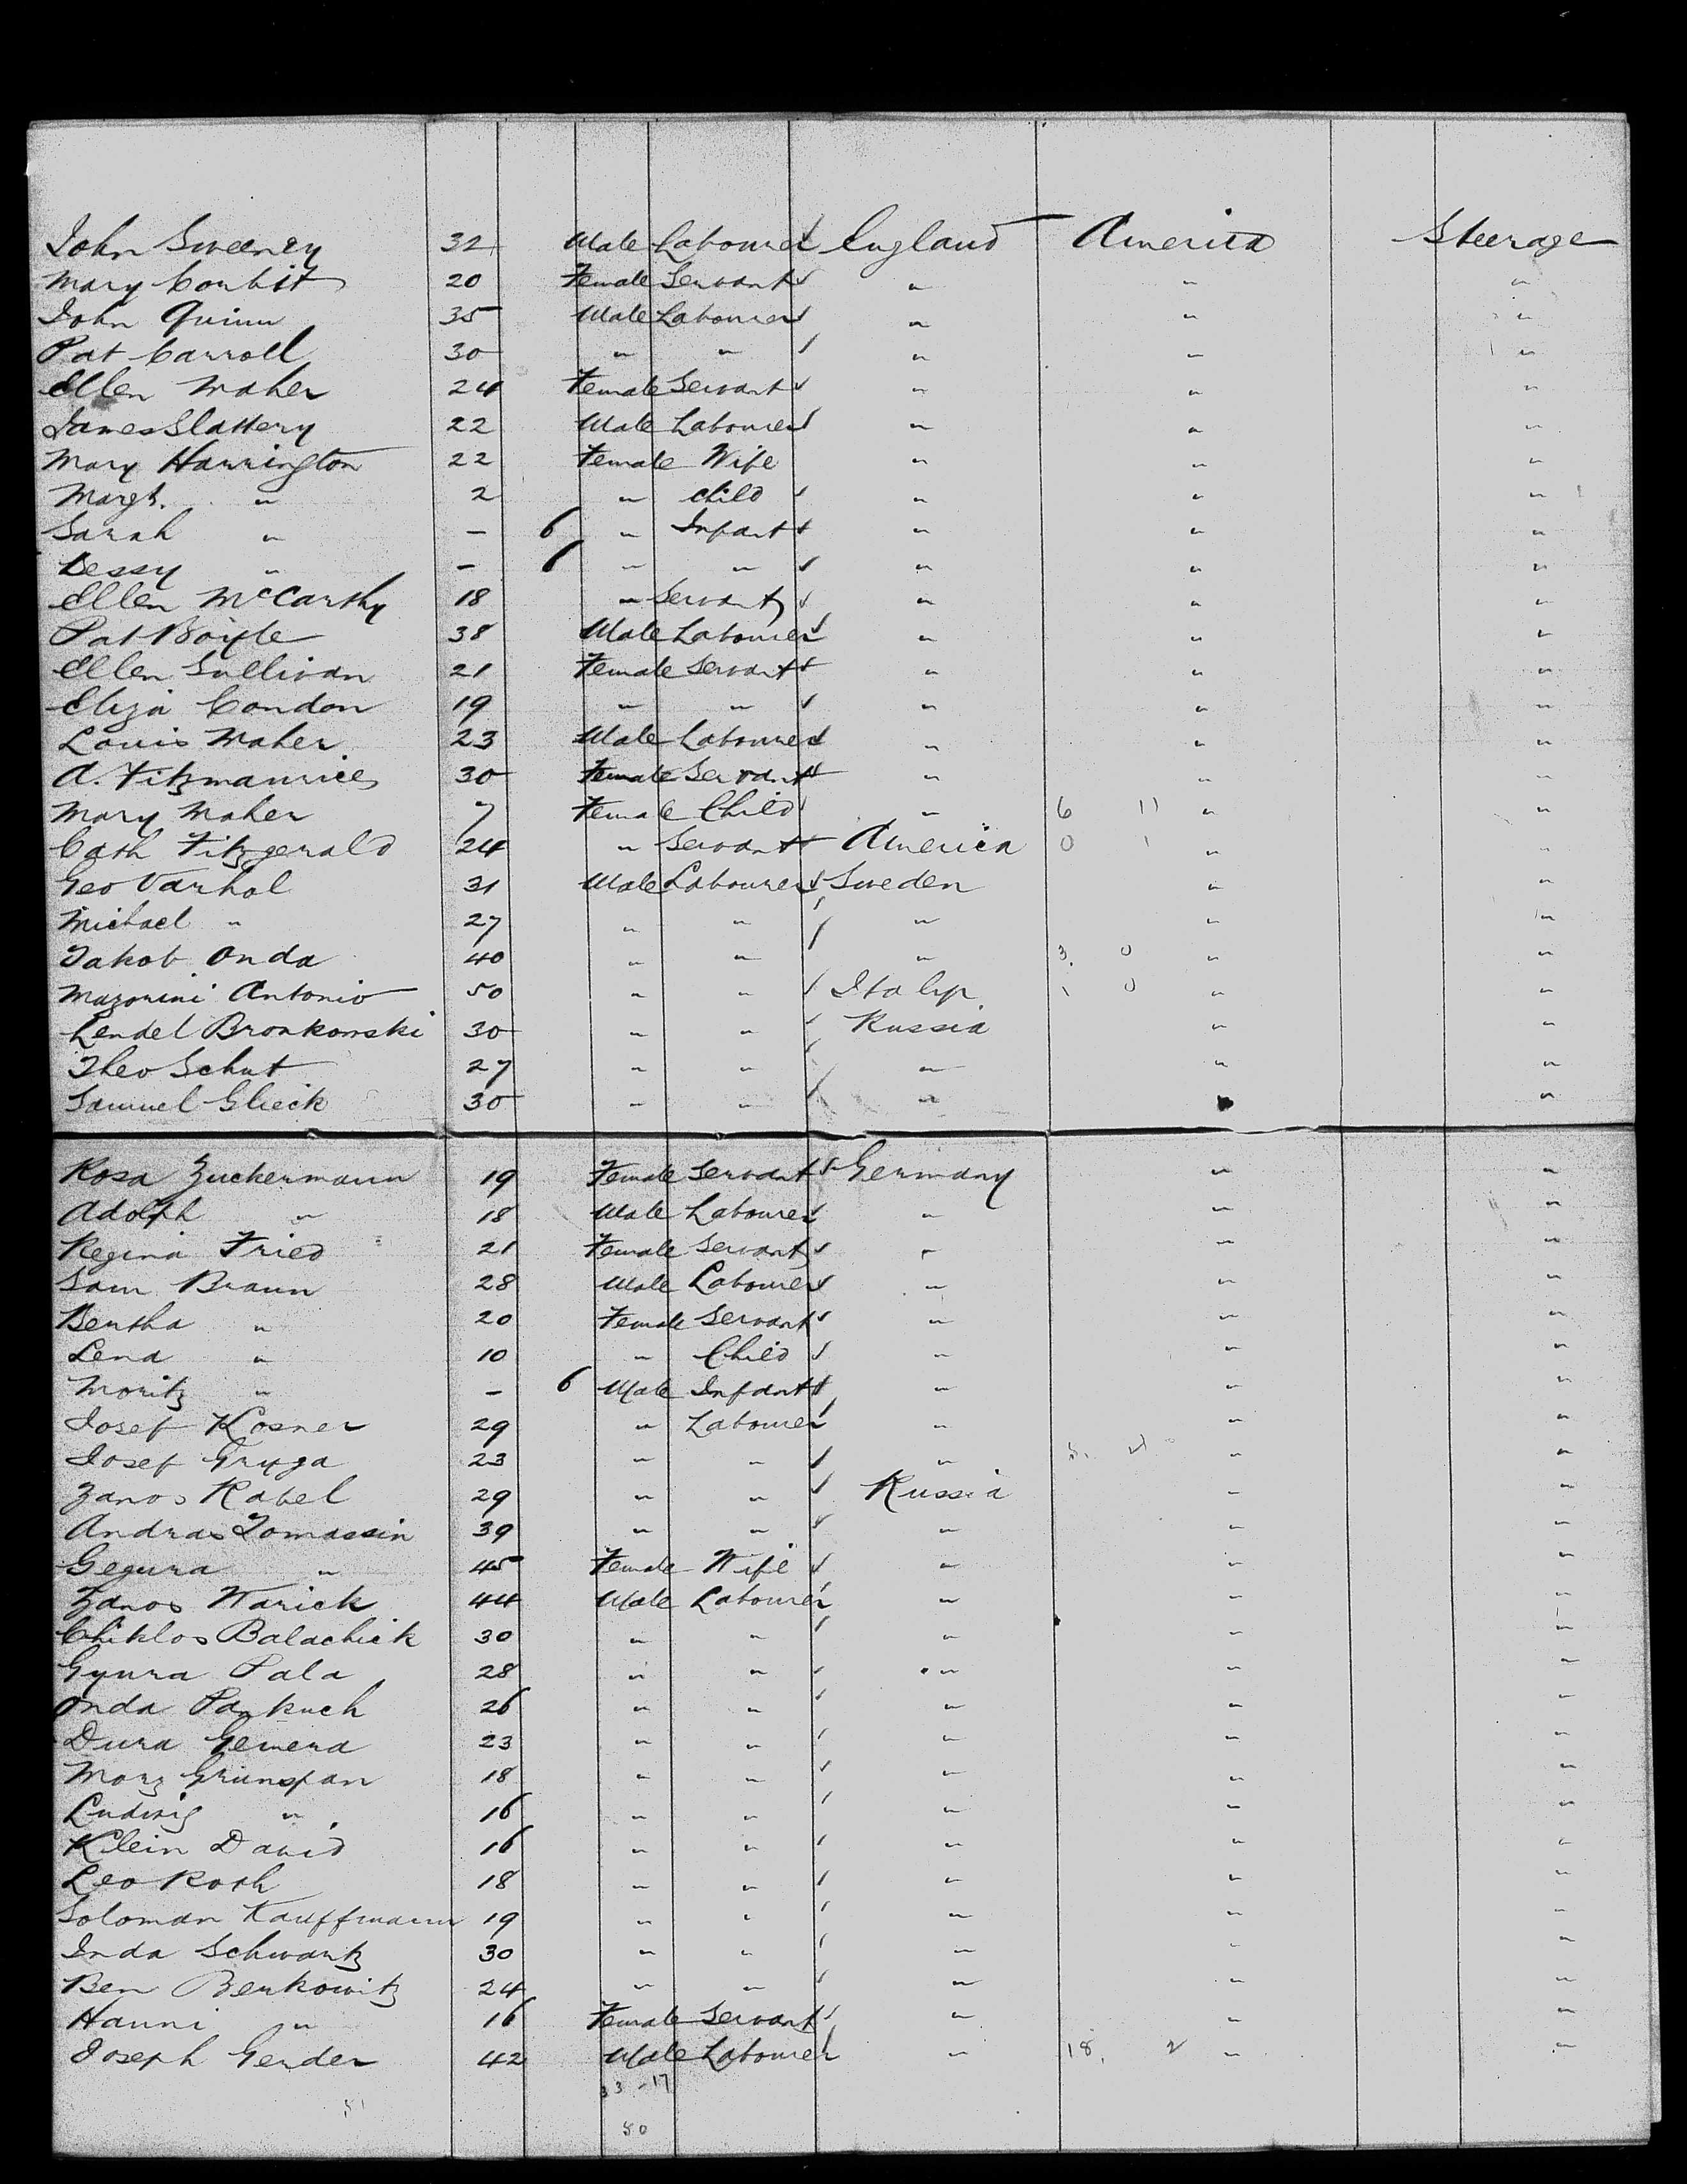 John Sweeney 32 Male Labourer England America Steerage
Mary Corbit 20 Female Servant " " "
John Quinn 35 Male Labourer " " "
Pat Carroll 30 " " " " "
Ellen Maher 24 Female Servant " " "
James Slattery 22 Male Labourer " " "
Mary Harrington 22 Female Wife " " "
Margt. " 2 " Child " " "
Sarah " - 6 " Infant " " "
Bessy " - 6 " " " " "
Ellen McCarthy 18 " Servant " " "
Pat Boyle 38 Male Labourer " " "
Ellen Sullivan 21 Female Servant " " "
Eliza Condon 19 " " " " "
Louis Maher 23 Male Labourer " " "
A. Fitzmaurice 30 Female Servant " " "
Mary Maher 7 Female Child " 6 11 " "
Cath Fitzgerald 24 " Servant America 0 1 " "
Geo Varhol 31 Male Labourer Sweden " "
Michael " 27 " " " " "
Jakob Onda 40 " " " 3. 0 " "
Mazonini Antonio 50 " " Italy 1 0 " "
Lendel Bronkowski 30 " " Russia " "
Theo Schut 27 " " " " "
Samuel Glieck 30 " " " " "
Rosa Zuckermann 19 Female Servant Germany " "
Adolph " 18 Male Labourer " " "
Regina Fried 21 Female Servant " " "
Sam Braun 28 Male Labourer " " "
Bertha " 20 Female Servant " " "
Lena " 10 " Child " " "
Moritz " - 6 Male Infant " " "
Josef Kosner 29 " Labourer " " "
Josef Gryga 23 " " " " "
Zanos Rabel 29 " " Russia " "
Andras Tomassin 39 " " " " "
Gegura " 45 Female Wife " " "
Zanos Warick 44 Male Labourer " " "
Chiklos Balachick 30 " " " " "
Gyura Pala 28 " " " " "
Onda Pankuch 26 " " " " "
Dura Gemera 23 " " " " "
Morz Grünspan 18 " " " " "
Ludwig " 16 " " " " "
Klein David 16 " " " " "
Leo Roth 18 " " " " "
Soloman Kauffmann 19 " " " " "
Inda Schwartz 30 " " " " "
Ben Berkowitz 24 " " " " "
Hanni " 16 Female Servant " " "
Joseph Gerder 42 Male Labourer " 18. 2 " "
33 - 17
50